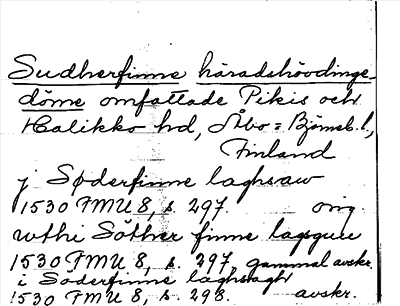 Sudherfinne häradshövdinge-
döme omfattade Pikis och
Halikko hd, Åbo = Björneb. l,
Finland
j Søderfinne laghsaw
1530 FMU 8, s. 297. orig
wthi Söther finne lagsgure
1530 FMU 8, s. 297, gammal avskr.
i Söderfinne laghsagh
1530 FMU 8, s. 298. avskr.